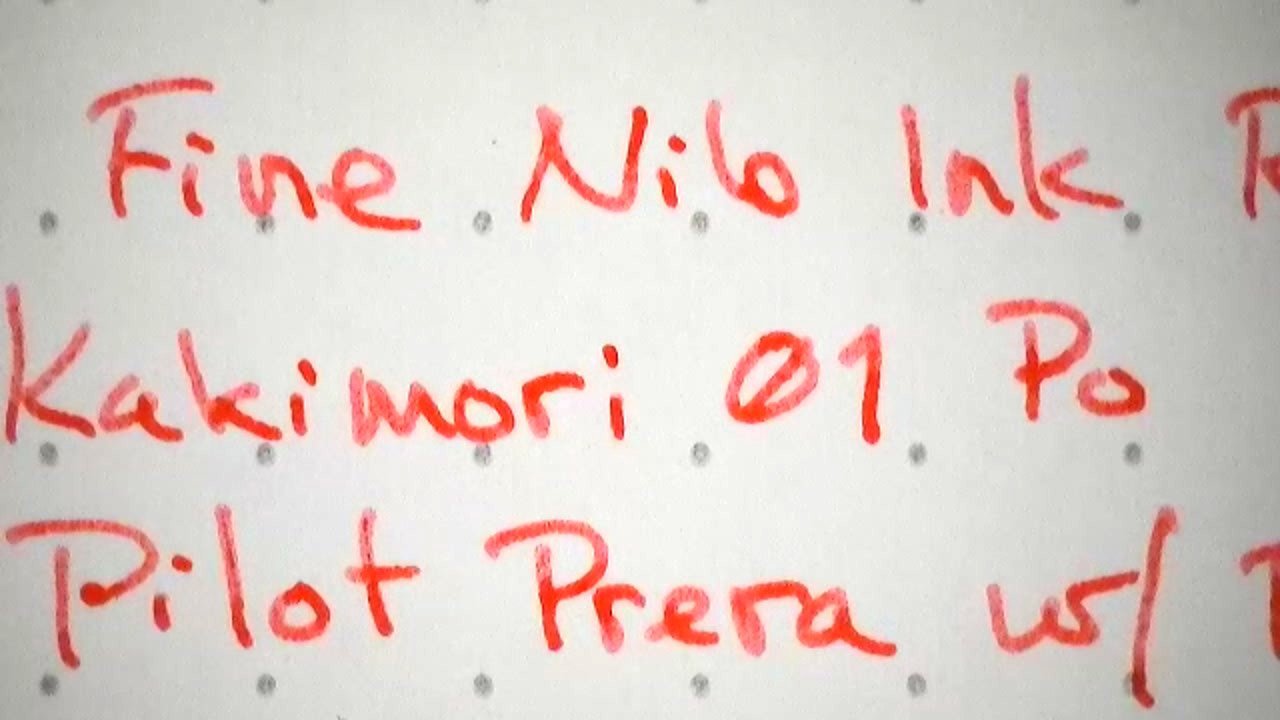 Fine Nib Ink
Kakimori 01 Po
Pilot Prera w/